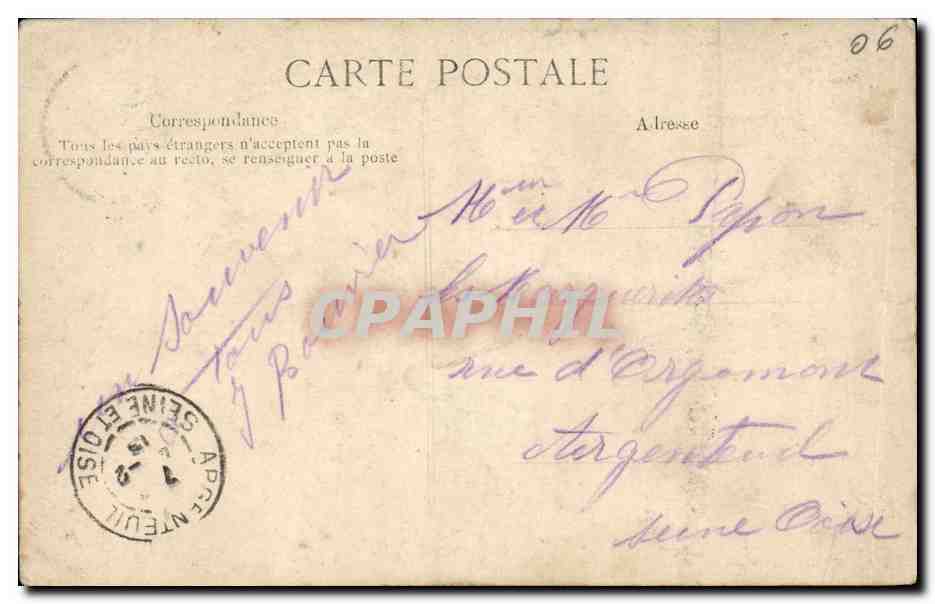 06
CARTE POSTALE
Correspondance
Tous les pays étrangers n'acceptent pas la
correspondance au recto, se renseigner à la poste
Adresse
souvenir
tous
J
Mr et Mme Papon
les Marguerites
rue d'Orgemont
Argenteuil
Seine Oise
CPAPHIL
ARGENTEUIL
SEINE ET OISE